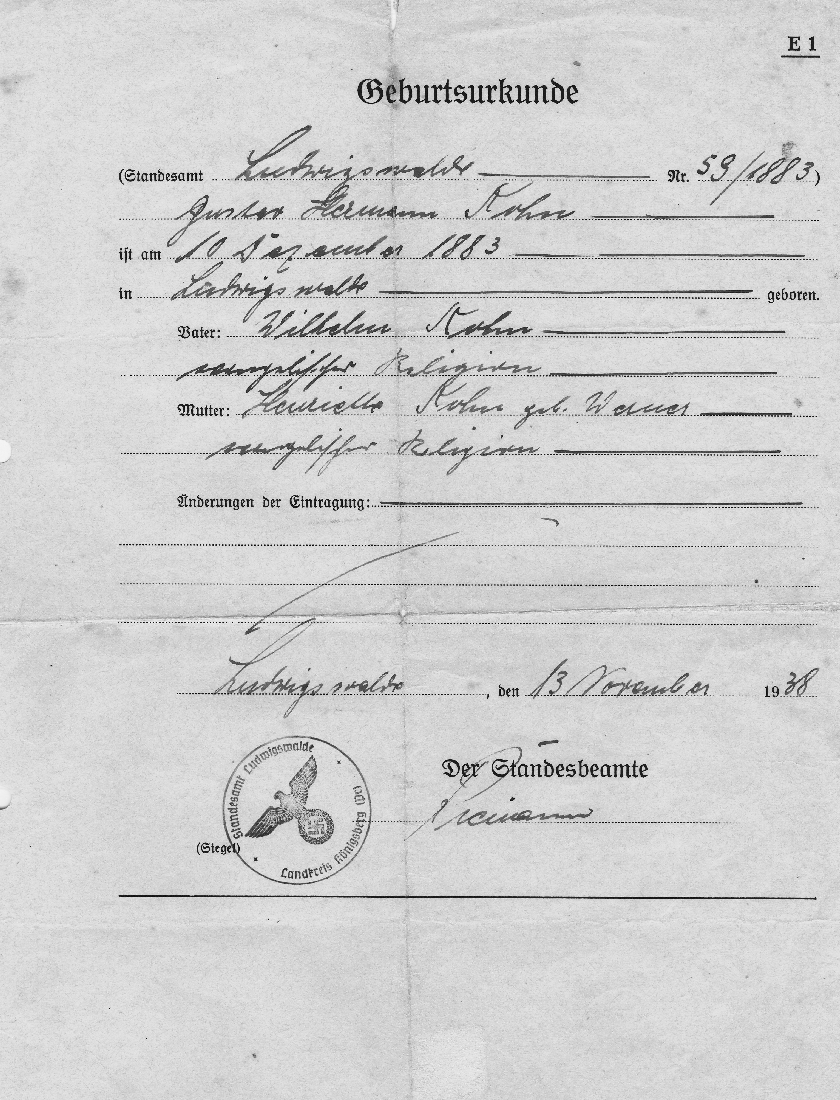 E 1
Geburtsurkunde
(Standesamt Ludwigswalde Nr. 59/1883)
Gustav Hermann Kohn
ist am 10 Dezember 1883
in Ludwigswalde geboren.
Vater: Wilhelm Kohn
evangelischer Religion
Mutter: Henriette Kohn geb. Werner
evangelischer Religion
Änderungen der Eintragung:
Ludwigswalde, den 13 November 1938
Der Standesbeamte
Standesamt Ludwigswalde
Landkreis Königsberg (Pr)
(Siegel)